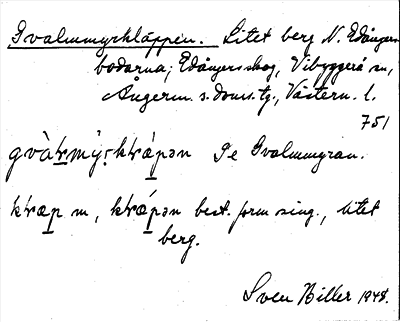 Gvalmmyrkläppen. Litet berg N. Edångers-
bodarna, Edångersskog, Vibyggerå sn,
Ångerm. s. doms. tg., Västern. l.
751
gvàḻmỳr̥kḻǽpən Se Gvalmmyran.
kḻæp m, kḻǽpən best. form sing., litet
berg.
Sven Biller 1948.